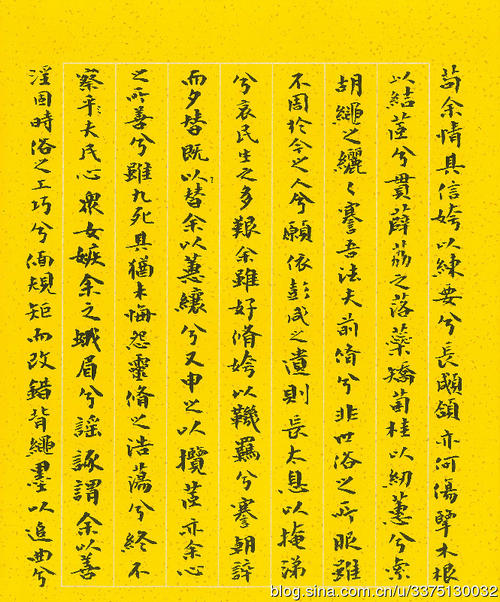 苟余情其信姱以練要兮長顑頷亦何傷擥木根
以結茝兮貫薜荔之落蘂矯菌桂以紉蕙兮索
胡繩之纚々謇吾法夫前脩兮非世俗之所服雖
不周於今之人兮願依彭咸之遺則長太息以掩涕
兮哀民生之多艱余雖好脩姱以鞿羈兮謇朝誶
而夕替既以替余以蕙纕兮又申之以攬茝亦余心
之所善兮雖九死其猶未悔怨靈脩之浩蕩兮終不
察乎夫民心眾女嫉余之蛾眉兮謠諑謂余以善
淫固時俗之工巧兮偭規矩而改錯背繩墨以追曲兮
blog.sina.com.cn/u/3375130032